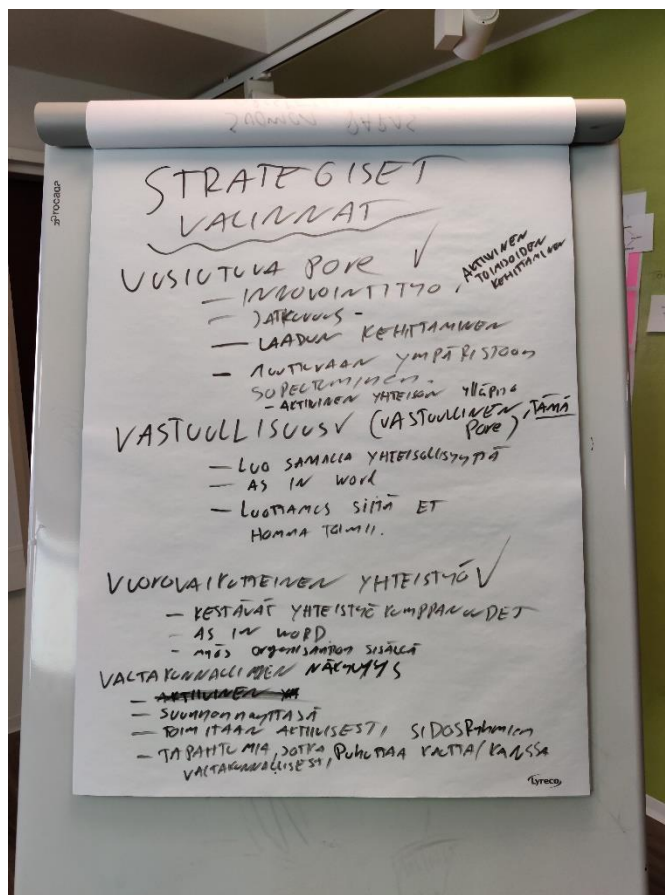 SUOMEN PARAS
procaop
STRATEGISET
VALINNAT
UUSIUTUVA PORE ✓
– INNOVOINTITYÖ, AKTIIVINEN
TOIMIJOIDEN
KEHITTÄMINEN
– JATKUVUUS –
– LAADUN KEHITTÄMINEN
– MUUTTUVAAN YMPÄRISTÖÖN
SOPEUTUMINEN.
– AKTIIVINEN YHTEISÖN YLLÄPITO
VASTUULLISUUS ✓ (VASTUULLINEN, TÄMÄ
PORE)
– LUO SAMALLA YHTEISÖLLISYYTTÄ
– AS IN WORD
– LUOTTAMUS SIITÄ ET
HOMMA TOIMII.
VUOROVAIKUTTEINEN YHTEISTYÖ ✓
– KESTÄVÄT YHTEISTYÖKUMPPANUUDET
– AS IN WORD
– MYÖS ORGANISAATION SISÄLLÄ
VALTAKUNNALLINEN NÄKYVYYS
– AKTIIVINEN
– SUUNNANNÄYTTÄJÄ
– TOIMITAAN AKTIIVISESTI SIDOSRYHMIEN
– TAPAHTUMIA, JOTKA PUHUTTAA KAUTTA/KANSSA
VALTAKUNNALLISESTI
Lyreco